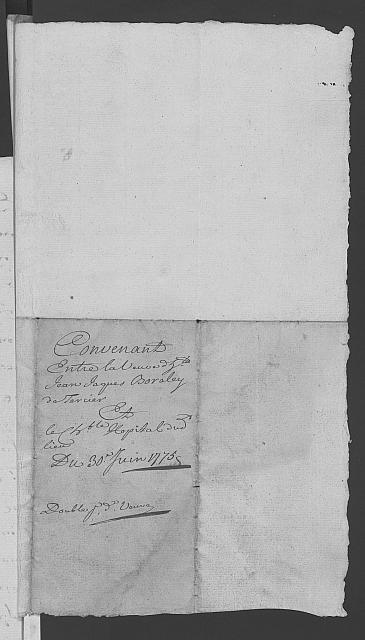 Convenant
Entre la Veuve d'h.ble
Jean Jaques Boraley
de Tercier
Et
le Ch.ble Hopital dud.
lieu
Du 30.e Juin 1775
Double p.r d.e Veuve